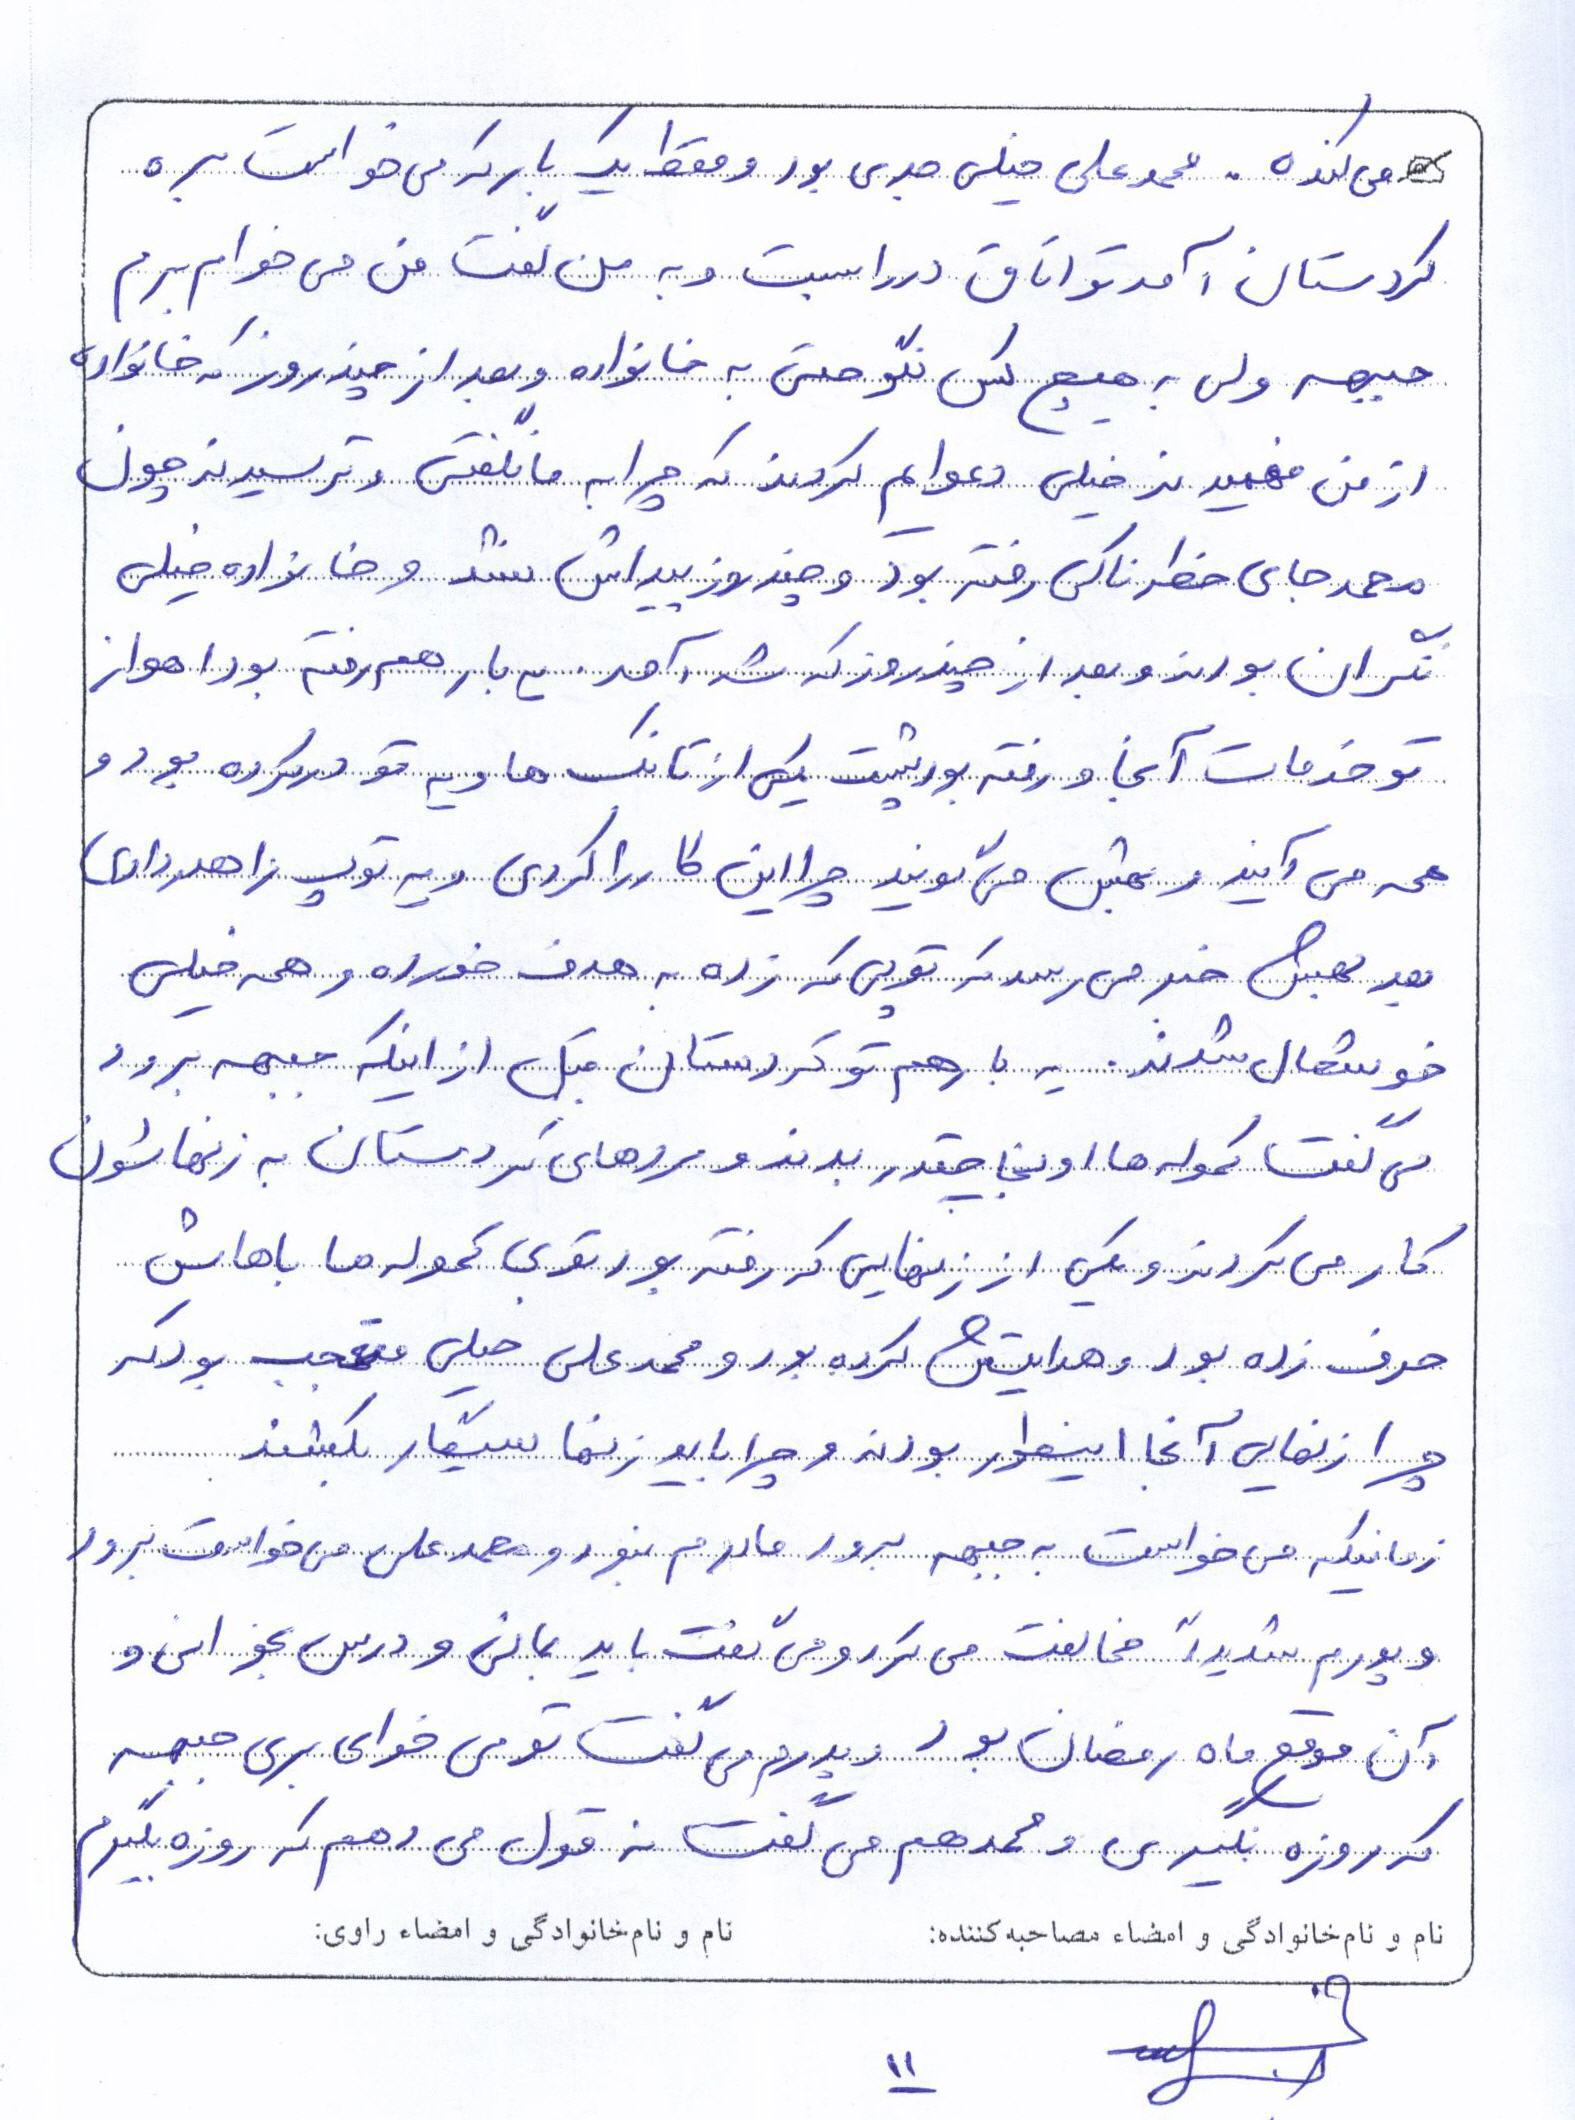 می‌کنده. محمدعلی خیلی جدی بود و فقط یک بار که می‌خواست بره
کردستان آمد تو اتاق در را بست و به من گفت من می‌خوام برم
جبهه ولی به هیچ کس نگو حتی به خانواده و بعد از چند روز که خانواده
از من فهمیدند خیلی دعوایم کردند که چرا به ما نگفتی و ترسیدند چون
محمد جای خطرناکی رفته بود و چند روز پیداش نشد و خانواده خیلی
نگران بودند و بعد از چند روز که شد آمد. یه بار هم رفته بود اهواز
تو خدمات آنجا و رفته بود پشت یکی از تانک ها و یه تو در کرده بود و
همه می آیند و بهش می گویند چرا این کار را کردی و یه توپ را هدر دادی
بعد بهش خبر می رسد که توپی که زده به هدف خورده و همه خیلی
خوشحال شدند. یه بار هم تو کردستان قبل از اینکه جبهه برود
می گفت کموله ها اونجا چقدر بدند و مردهای کردستان به زنهاشون
کار می کردند و یکی از زنهایی که رفته بود توی کموله ها باهاش
حرف زده بود و هدایتش کرده بود و محمدعلی خیلی متعجب بود که
چرا زنهایی آنجا اینطور بودند و چرا باید زنها سیگار بکشند
زمانیکه می خواست به جبهه برود مادرم نبود و محمدعلی می خواست برود
و پدرم شدیداً مخالفت می کرد و می گفت باید بمانی و درس بخوانی و
آن موقع ماه رمضان بود و پدرم می گفت تو می خوای بری جبهه
که روزه نگیری و محمد هم می گفت نه قول می دهم که روزه بگیرم
نام و نام‌خانوادگی و امضاء مصاحبه‌کننده: نام و نام‌خانوادگی و امضاء راوی:
۱۱